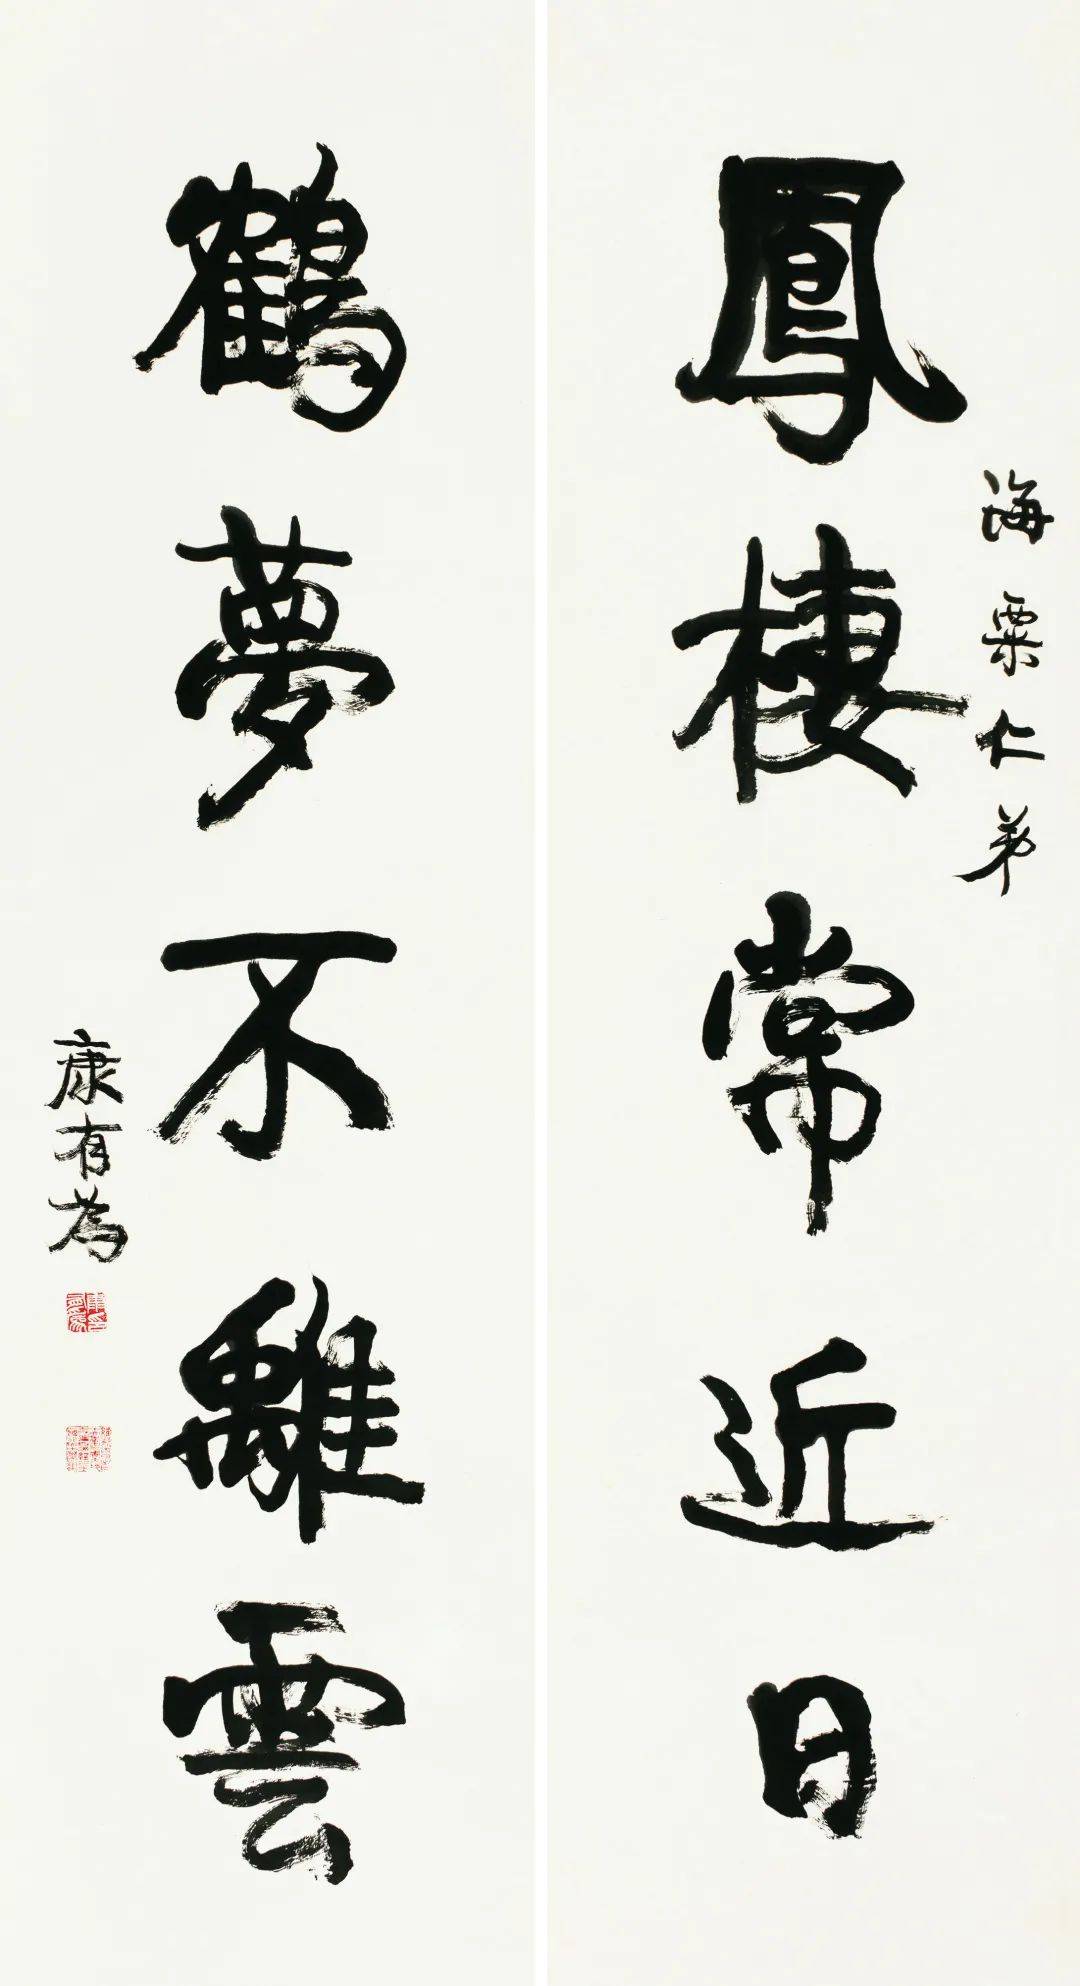 鳳棲常近日
海粟仁弟
鶴夢不離雲
康有為